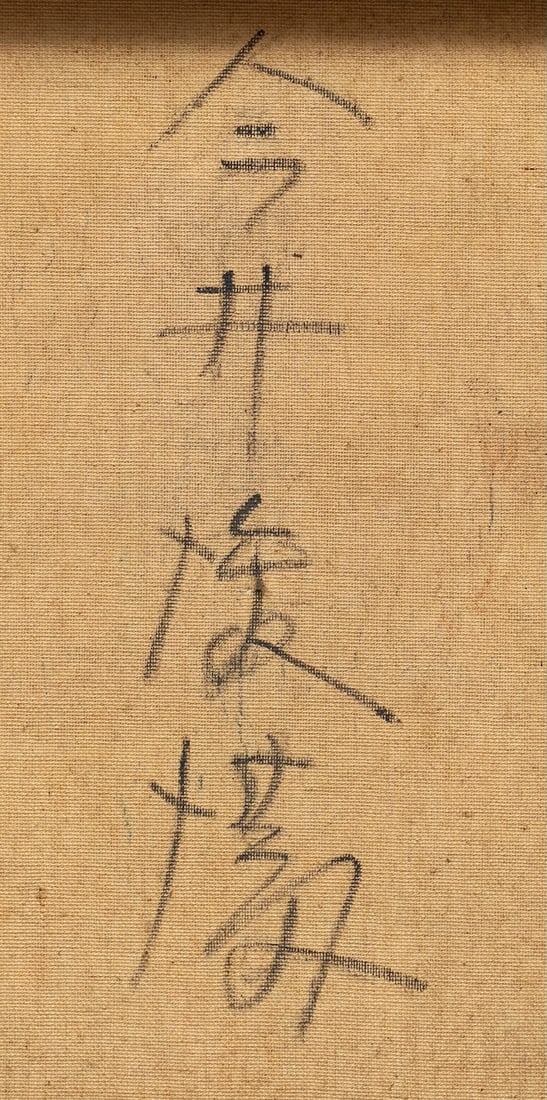 今井俊満